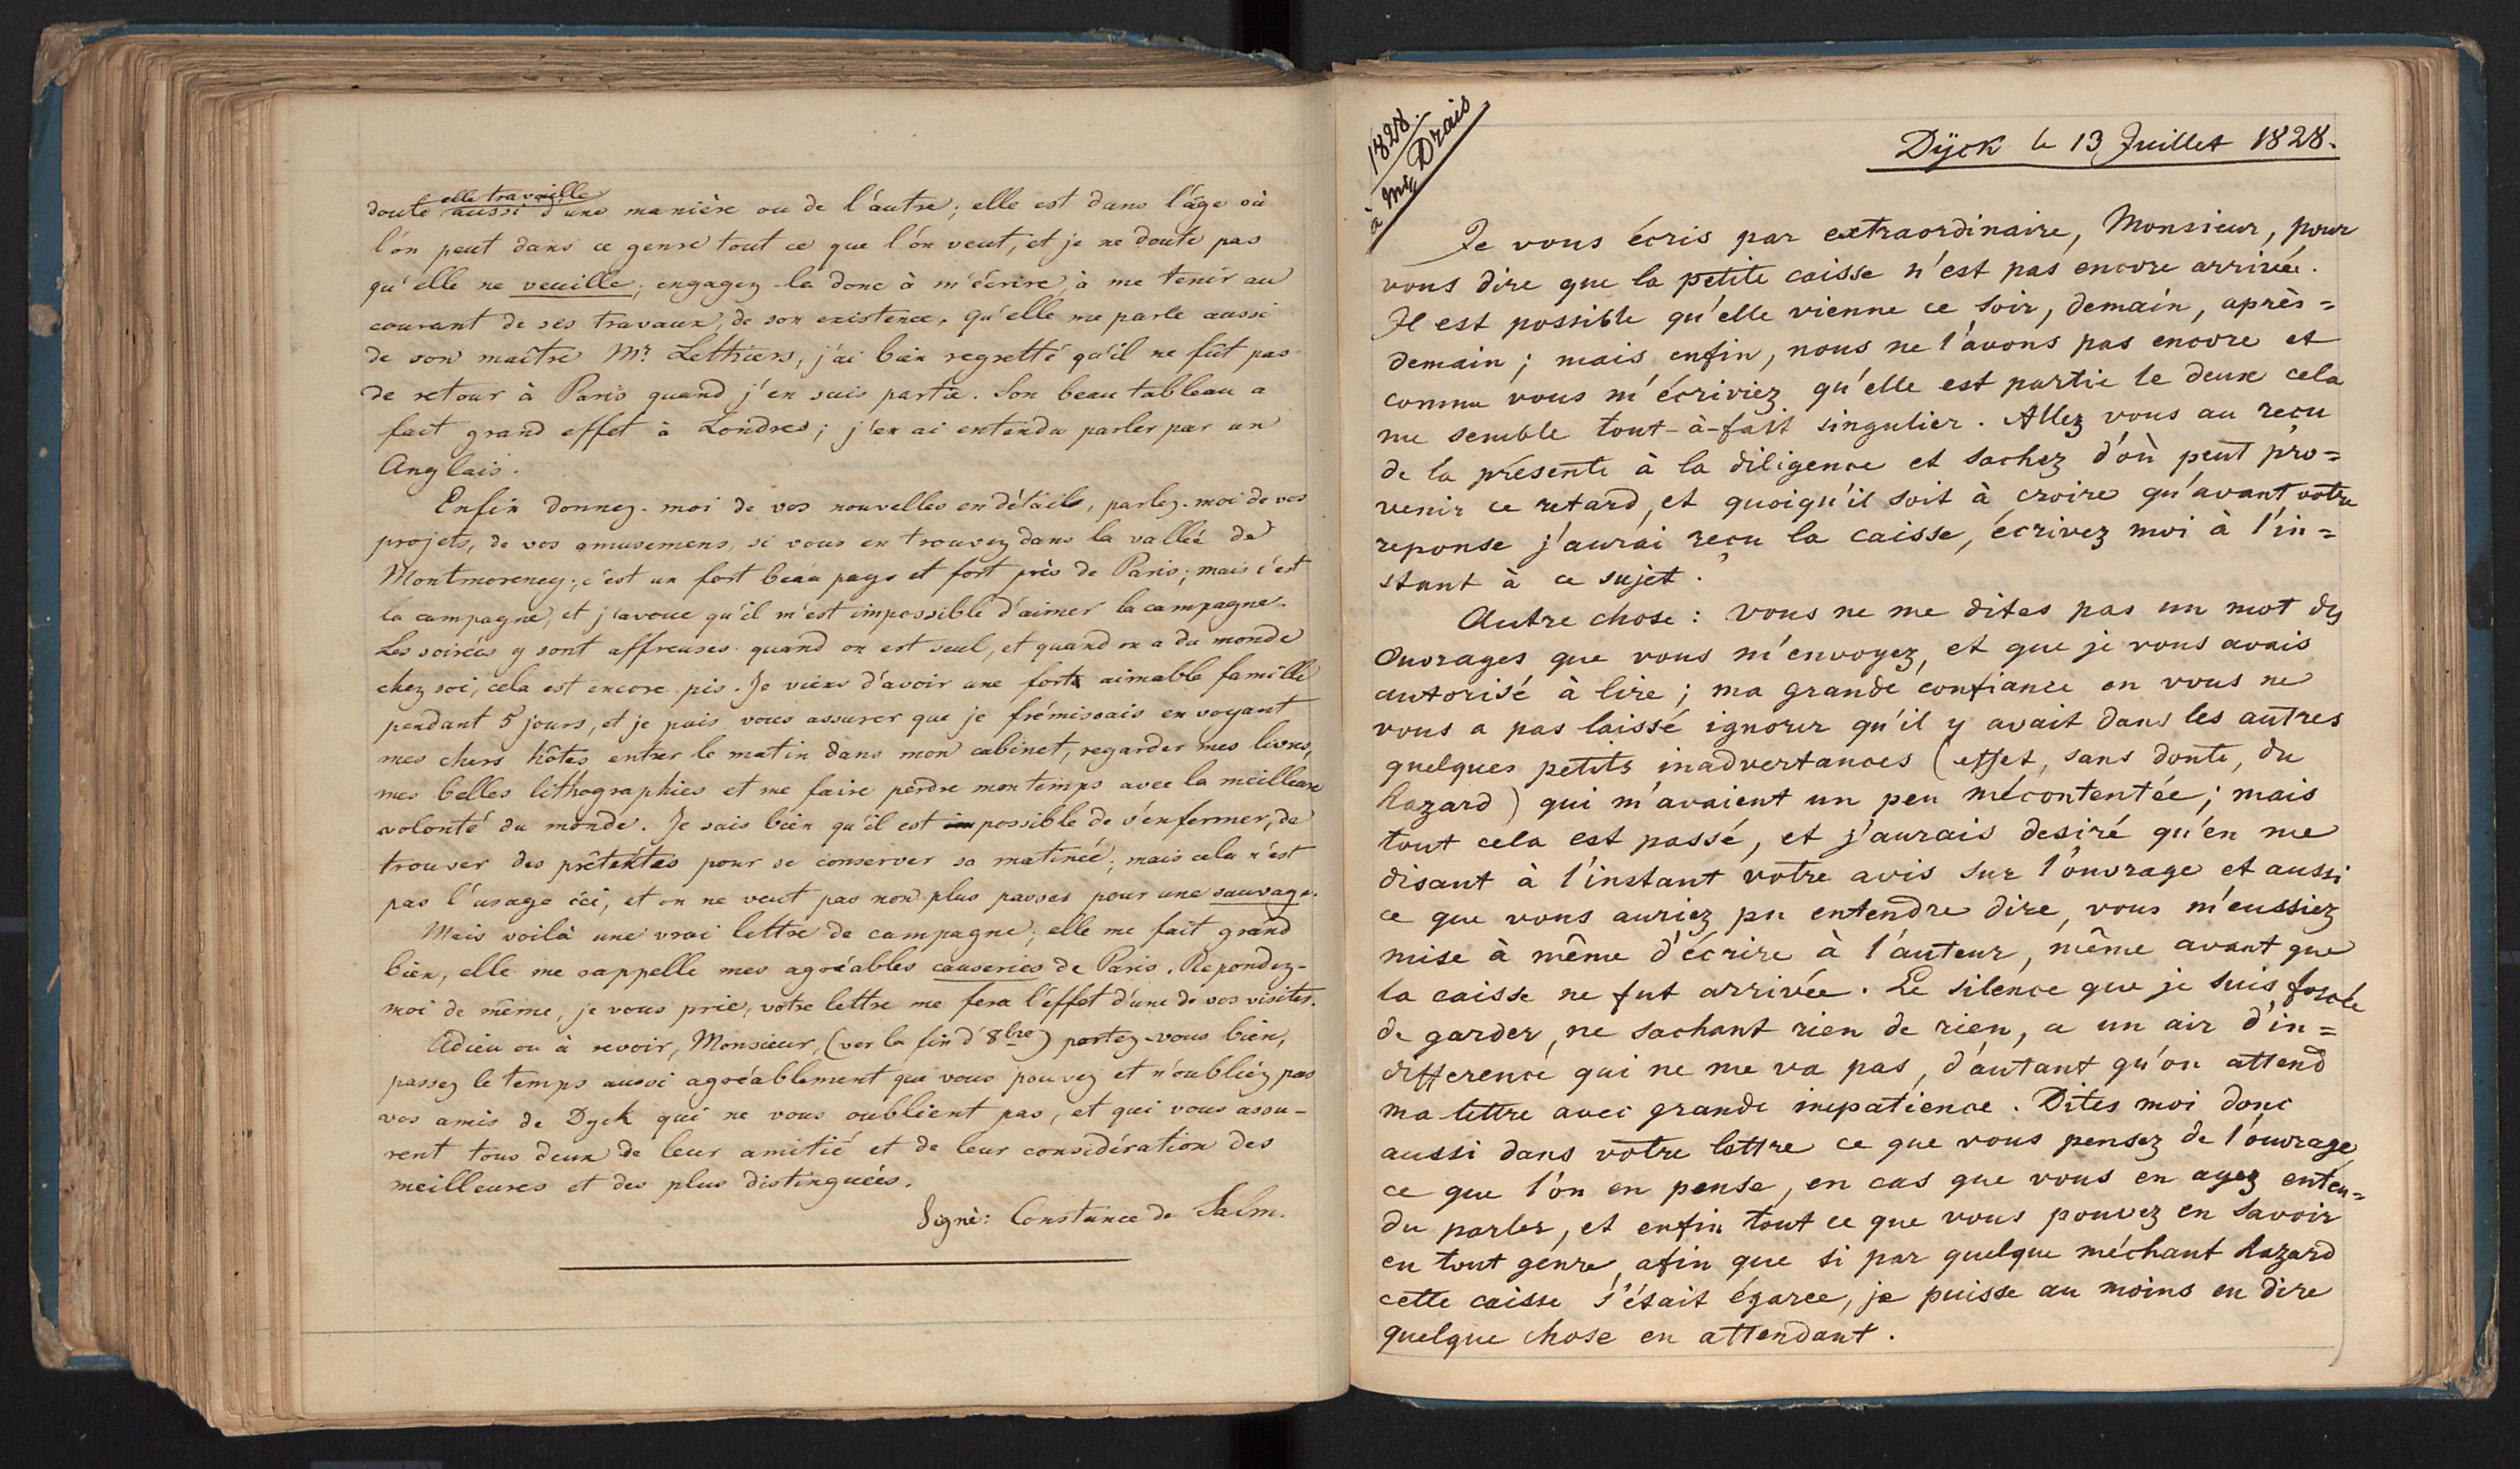 doute elle travaille aussi d'une manière ou de l'autre; elle est dans l'âge où
l'on peut dans ce genre tout ce que l'on veut, et je ne doute pas
qu'elle ne veuille; engagez-là donc à m'écrire, à me tenir au
courant de ses travaux, de son existence, qu'elle me parle aussi
de son maître Mr. Lethiers, j'ai bien regretté qu'il ne fût pas
de retour à Paris quand j'en suis partie. Son beau tableau a
fait grand effet à Londres; j'en ai entendu parler par un
Anglais.
Enfin donnez-moi de vos nouvelles en détails, parlez-moi de vos
projets, de vos amusemens, si vous en trouvez dans la vallée de
Montmorency; c'est un fort beau pays et fort près de Paris; mais c'est
la campagne, et j'avoue qu'il m'est impossible d'aimer la campagne.
Les soirées y sont affreuses quand on est seul, et quand on a du monde
chez soi, cela est encore pis. Je viens d'avoir une fort aimable famille
pendant 5 jours, et je puis vous assurer que je frémissais en voyant
mes chers hôtes entrer le matin dans mon cabinet, regarder mes livres,
mes belles lithographies et me faire perdre mon temps avec la meilleure
volonté du monde. Je sais bien qu'il est possible de s'enfermer, de
trouver des prétextes pour se conserver sa matinée; mais cela n'est
pas l'usage ici, et on ne veut pas non plus passer pour une sauvage.
Mais voilà une vrai lettre de campagne; elle me fait grand
bien, elle me rappelle mes agréables causeries de Paris. Repondez-
moi de même, je vous prie, votre lettre me fera l'effet d'une de vos visites.
Adieu ou à revoir, Monsieur, (ver la fin d'8bre) portez-vous bien,
passez le temps aussi agréablement que vous pouvez et n'oubliez pas
vos amis de Dyck qui ne vous oublient pas, et qui vous assu-
rent tous deux de leur amitié et de leur considération des
meilleures et des plus distinguées.
Signé: Constance de Salm.
1828.
à Mr. Drais
Dÿck le 13 Juillet 1828.
Je vous écris par extraordinaire, Monsieur, pour
vous dire que la petite caisse n'est pas encore arrivée.
Il est possible qu'elle vienne ce soir, demain, après=
demain; mais enfin, nous ne l'avons pas encore et
comme vous m'écriviez qu'elle est partie le deux cela
me semble tout-à-fait singulier. Allez vous au reçu
de la présente à la diligence et sachez d'où peut pro=
venir ce retard, et quoiqu'il soit à croire qu'avant votre
reponse j'aurai reçu la caisse, écrivez moi à l'in=
stant à ce sujet.
Autre chose: vous ne me dites pas un mot des
Ouvrages que vous m'envoyez, et que je vous avais
autorisé à lire; ma grande confiance en vous ne
vous a pas laissé ignorer qu'il y avait dans les autres
quelques petits inadvertances (effet, sans doute, du
hazard) qui m'avaient un peu mécontentée; mais
tout cela est passé, et j'aurais desiré qu'en me
disant à l'instant votre avis sur l'ouvrage et aussi
ce que vous auriez pu entendre dire, vous m'eussiez
mise à même d'écrire à l'auteur, même avant que
la caisse ne fut arrivée. Le silence que je suis forcée
de garder, ne sachant rien de rien, a un air d'in=
difference qui ne me va pas, d'autant qu'on attend
ma lettre avec grande impatience. Dites moi donc
aussi dans votre lettre ce que vous pensez de l'ouvrage,
ce que l'on en pense, en cas que vous en ayez enten=
du parler, et enfin tout ce que vous pouvez en savoir
en tout genre, afin que si par quelque méchant hazard
cette caisse s'était égarée, je puisse au moins en dire
quelque chose en attendant.